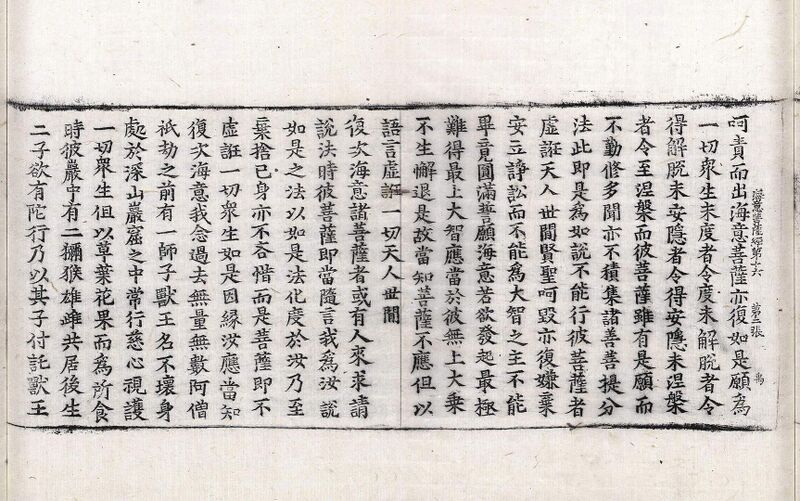 呵責而出海意菩薩亦復如是願爲
海意菩薩經第十六 第二張
一切衆生未度者令度未解脫者令
得解脫未安隱者令得安隱未涅槃
者令至涅槃而彼菩薩雖有是願而
不勤修多聞亦不積集諸善菩提分
法此即是爲如說不能行彼菩薩者
虛誑天人世間賢聖呵毀亦復嫌棄
安立諍訟而不能爲大智之主不能
畢竟圓滿誓願海意若欲發起最極
難得最上大智應當於彼無上大乗
不生懈退是故當知菩薩不應但以
語言虛誑一切天人世間
復次海意諸菩薩者或有人來求請
說法時彼菩薩即當隨言我爲汝說
如是之法以如是法化度於汝乃至
棄捨已身亦不吝惜而是菩薩即不
虛誑一切衆生如是因縁汝應當知
復次海意我念過去無量無數阿僧
祇劫之前有一師子獸王名不壞身
處於深山巖窟之中常行慈心視護
一切衆生但以草葉花果而爲所食
時彼巖中有二獼猴雄雌共居後生
二子欲有陀行乃以其子付託獸王